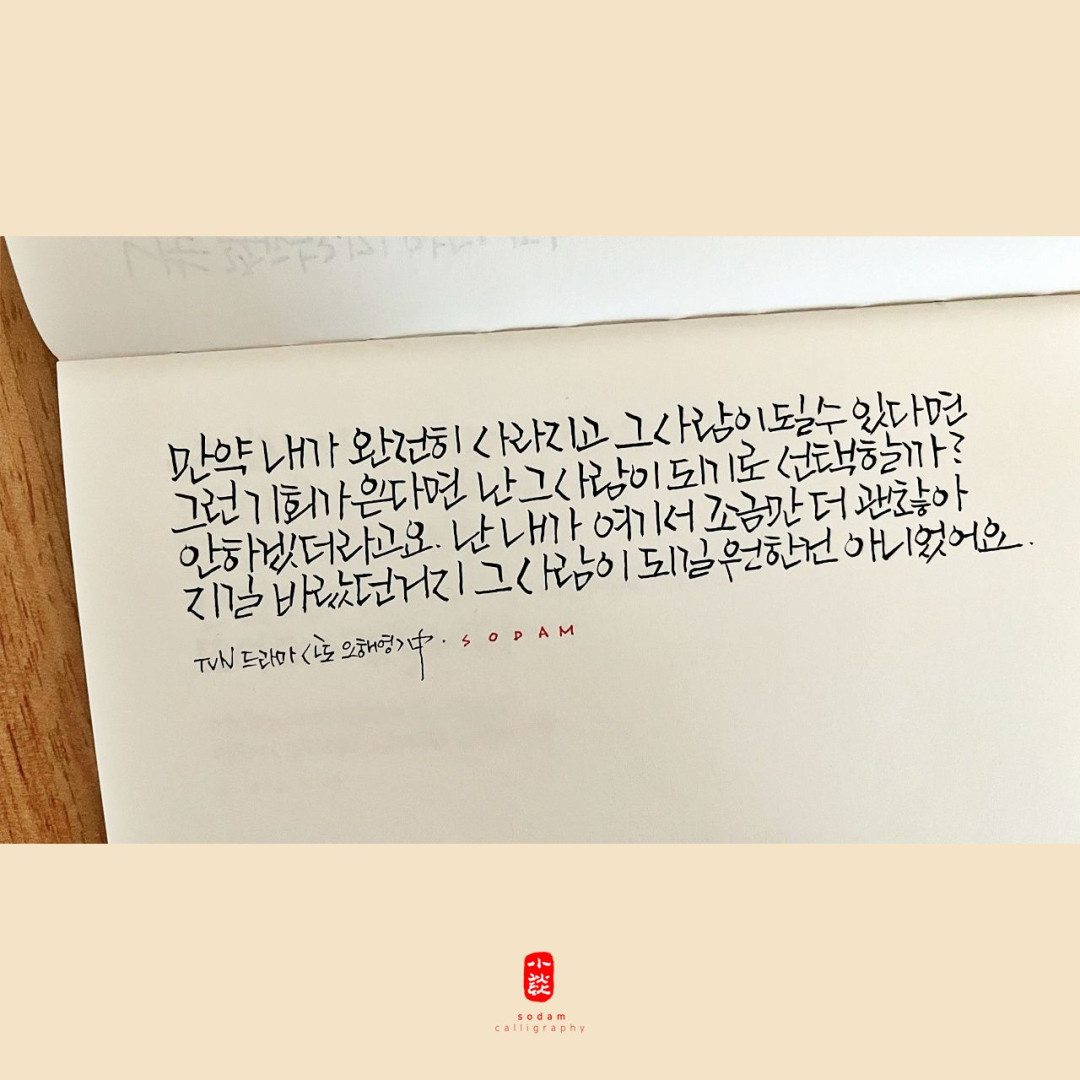 만약 내가 완전히 사라지고 그 사람이 될 수 있다면
그런 기회가 온다면 난 그 사람이 되기로 선택할까?
안하겠더라고요. 난 내가 여기서 조금만 더 괜찮아
지길 바랐던거지 그 사람이 되길 원한건 아니었어요.
TVN 드라마 <또 오해영> 中 · SODAM
小談
sodam
calligraphy